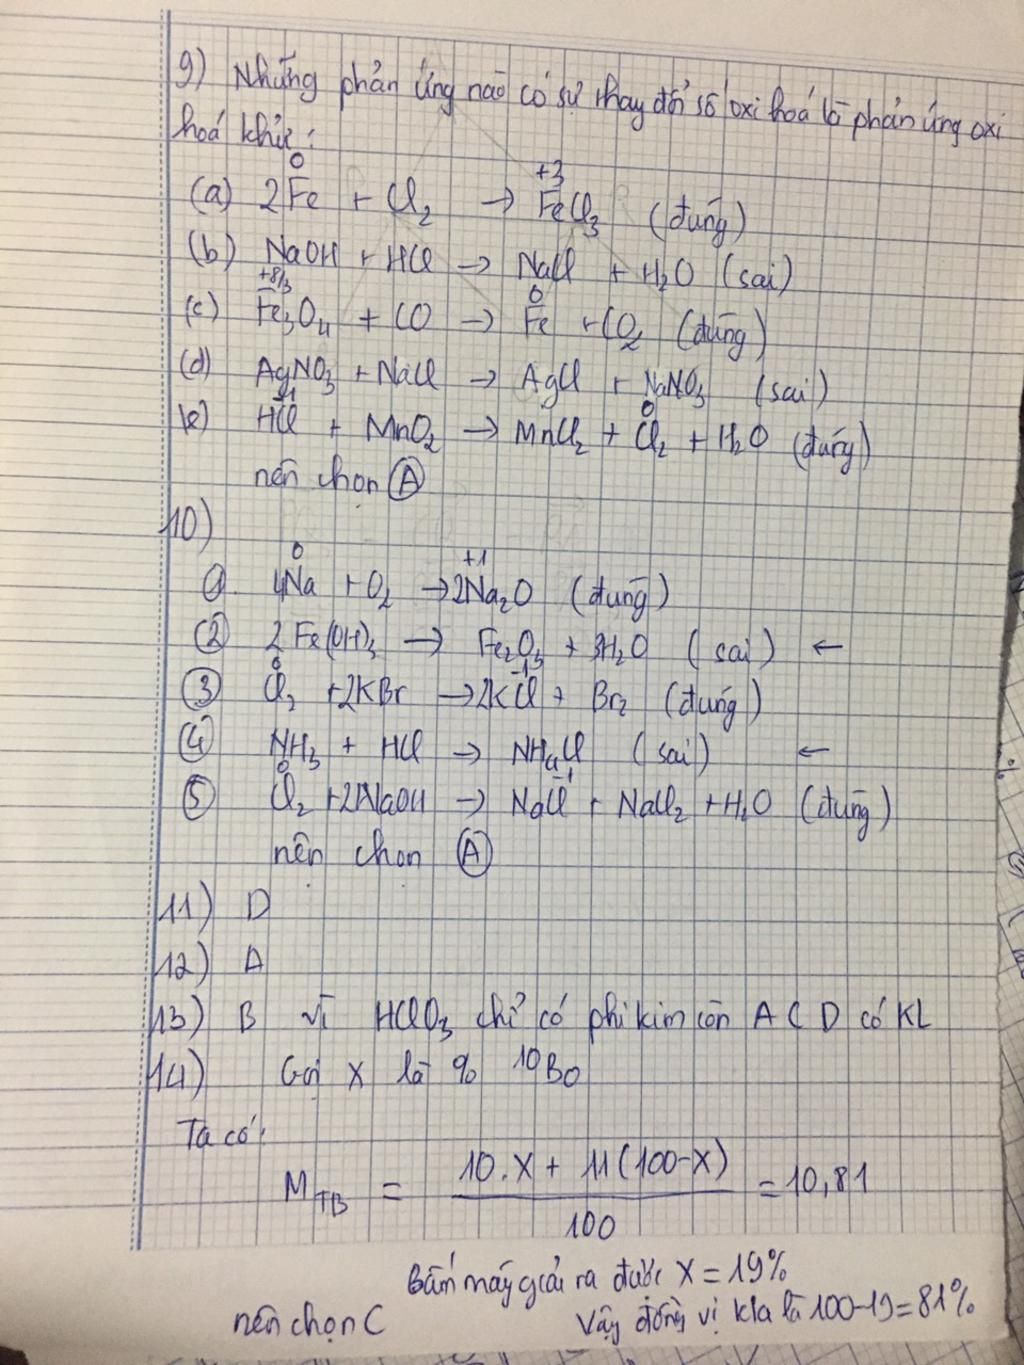 9) Những phản ứng nào có sự thay đổi số oxi hoá là phản ứng oxi
hoá khử:
0 +3
(a) 2Fe + Cl₂ → FeCl₃ (đúng)
(b) NaOH + HCl → NaCl + H₂O (sai)
+8/3 0
(c) Fe₃O₄ + CO → Fe + CO₂ (đúng)
(d) AgNO₃ + NaCl → AgCl + NaNO₃ (sai)
-1 0
(e) HCl + MnO₂ → MnCl₂ + Cl₂ + H₂O (đúng)
nên chọn A
10)
0 +1
① 4Na + O₂ → 2Na₂O (đúng)
② 2Fe(OH)₃ → Fe₂O₃ + 3H₂O (sai) ←
0 -1
③ Cl₂ + 2KBr → 2KCl + Br₂ (đúng)
④ NH₃ + HCl → NH₄Cl (sai) ←
0 -1
⑤ Cl₂ + 2NaOH → NaCl + NaCl₂ + H₂O (đúng)
nên chọn A
11) D
12) A
13) B vì HClO₃ chỉ có phi kim còn A C D có KL
14) Gọi X là % ¹⁰Bo
Ta có:
M_TB = 10.X + 11(100-X) / 100 = 10,81
Bấm máy giải ra được X = 19%
Vậy đồng vị kia là 100-19=81%
nên chọn C